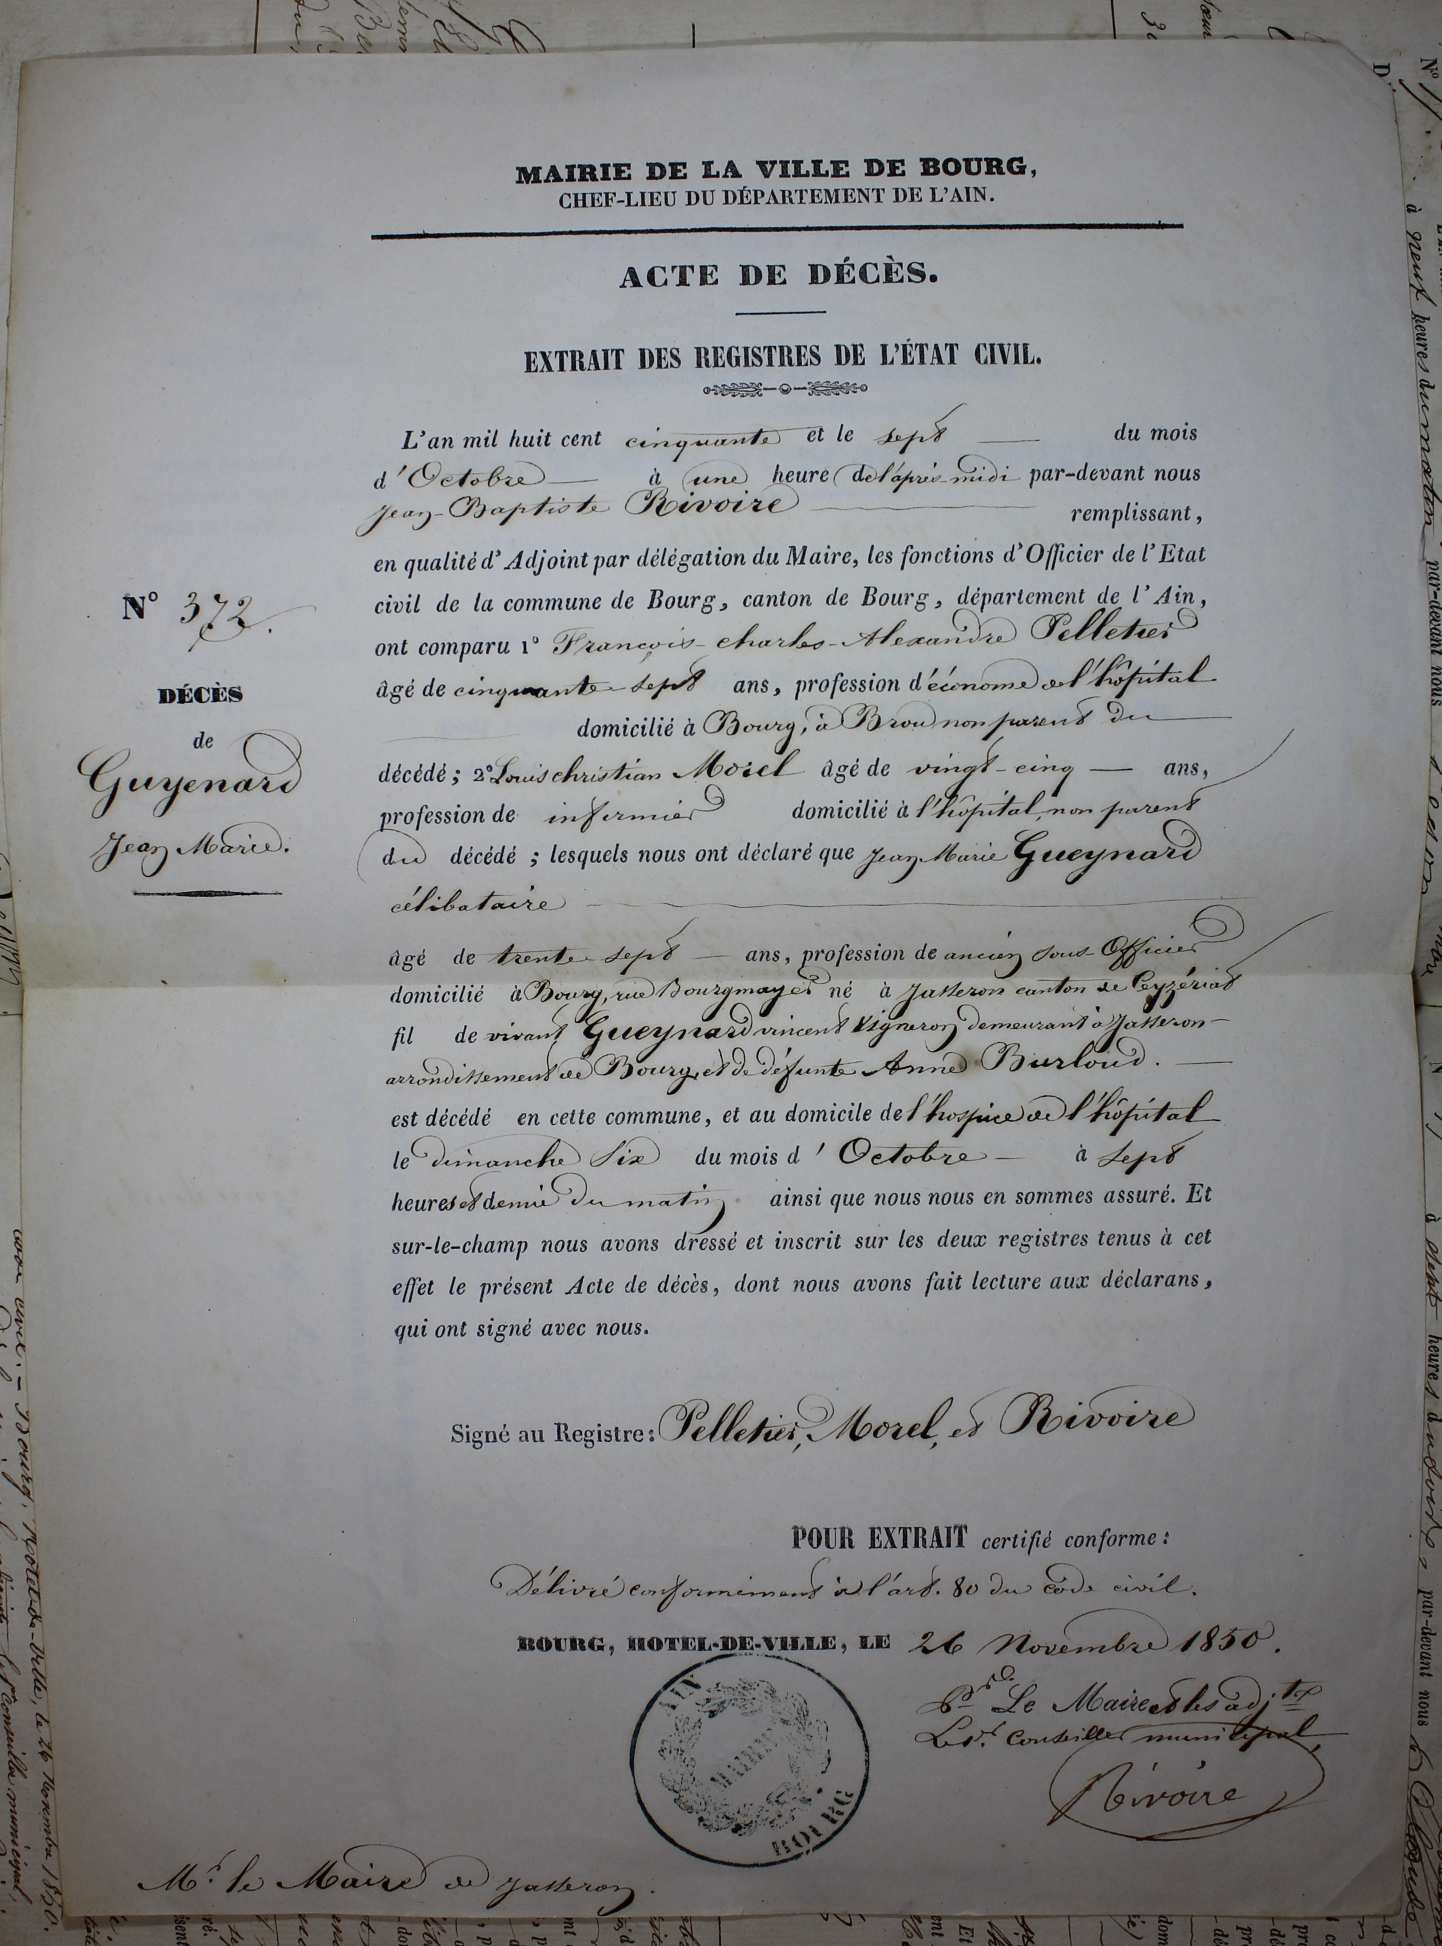 MAIRIE DE LA VILLE DE BOURG,
CHEF-LIEU DU DÉPARTEMENT DE L'AIN.
ACTE DE DÉCÈS.
EXTRAIT DES REGISTRES DE L'ÉTAT CIVIL.
L'an mil huit cent cinquante et le sept du mois
d'Octobre à une heure de l'après-midi par-devant nous
Jean-Baptiste Rivoire remplissant,
en qualité d'Adjoint par délégation du Maire, les fonctions d'Officier de l'Etat
civil de la commune de Bourg, canton de Bourg, département de l'Ain,
ont comparu 1° François-Charles-Alexandre Pelletier
âgé de cinquante-sept ans, profession d'économe de l'hôpital
domicilié à Bourg, à Brou non parent du
décédé ; 2° Louis christian Morel âgé de vingt-cinq ans,
profession de infirmier domicilié à l'hôpital, non parent
du décédé ; lesquels nous ont déclaré que Jean Marie Gueynard
célibataire
âgé de trente-sept ans, profession de ancien sous-Officier
domicilié à Bourg, rue Bourgmayer né à Jasseron canton de Ceyzériat
fil de vivant Gueynard vincent Vigneron demeurant à Jasseron
arrondissement de Bourg, et de défunte Anne Burloud.
est décédé en cette commune, et au domicile de l'hospice de l'hôpital
le dimanche Six du mois d'Octobre à sept
heures et demie du matin ainsi que nous nous en sommes assuré. Et
sur-le-champ nous avons dressé et inscrit sur les deux registres tenus à cet
effet le présent Acte de décès, dont nous avons fait lecture aux déclarans,
qui ont signé avec nous.
N° 372.
DÉCÈS
de
Guyenard
Jean Marie.
Signé au Registre : Pelletier, Morel, et Rivoire
POUR EXTRAIT certifié conforme :
Délivré conformément à l'art. 80 du code civil.
BOURG, HOTEL-DE-VILLE, LE 26 Novembre 1850.
Pr. Le Maire et les adjts
Le 1er Conseiller municipal,
Rivoire
AIN
MAIRIE
BOURG
Mr. le Maire de Jasseron.
à neuf heures du matin par-devant nous
à sept heures du soir, par-devant nous
Bourg, Hôtel-de-Ville, le 26 Novembre 1850.